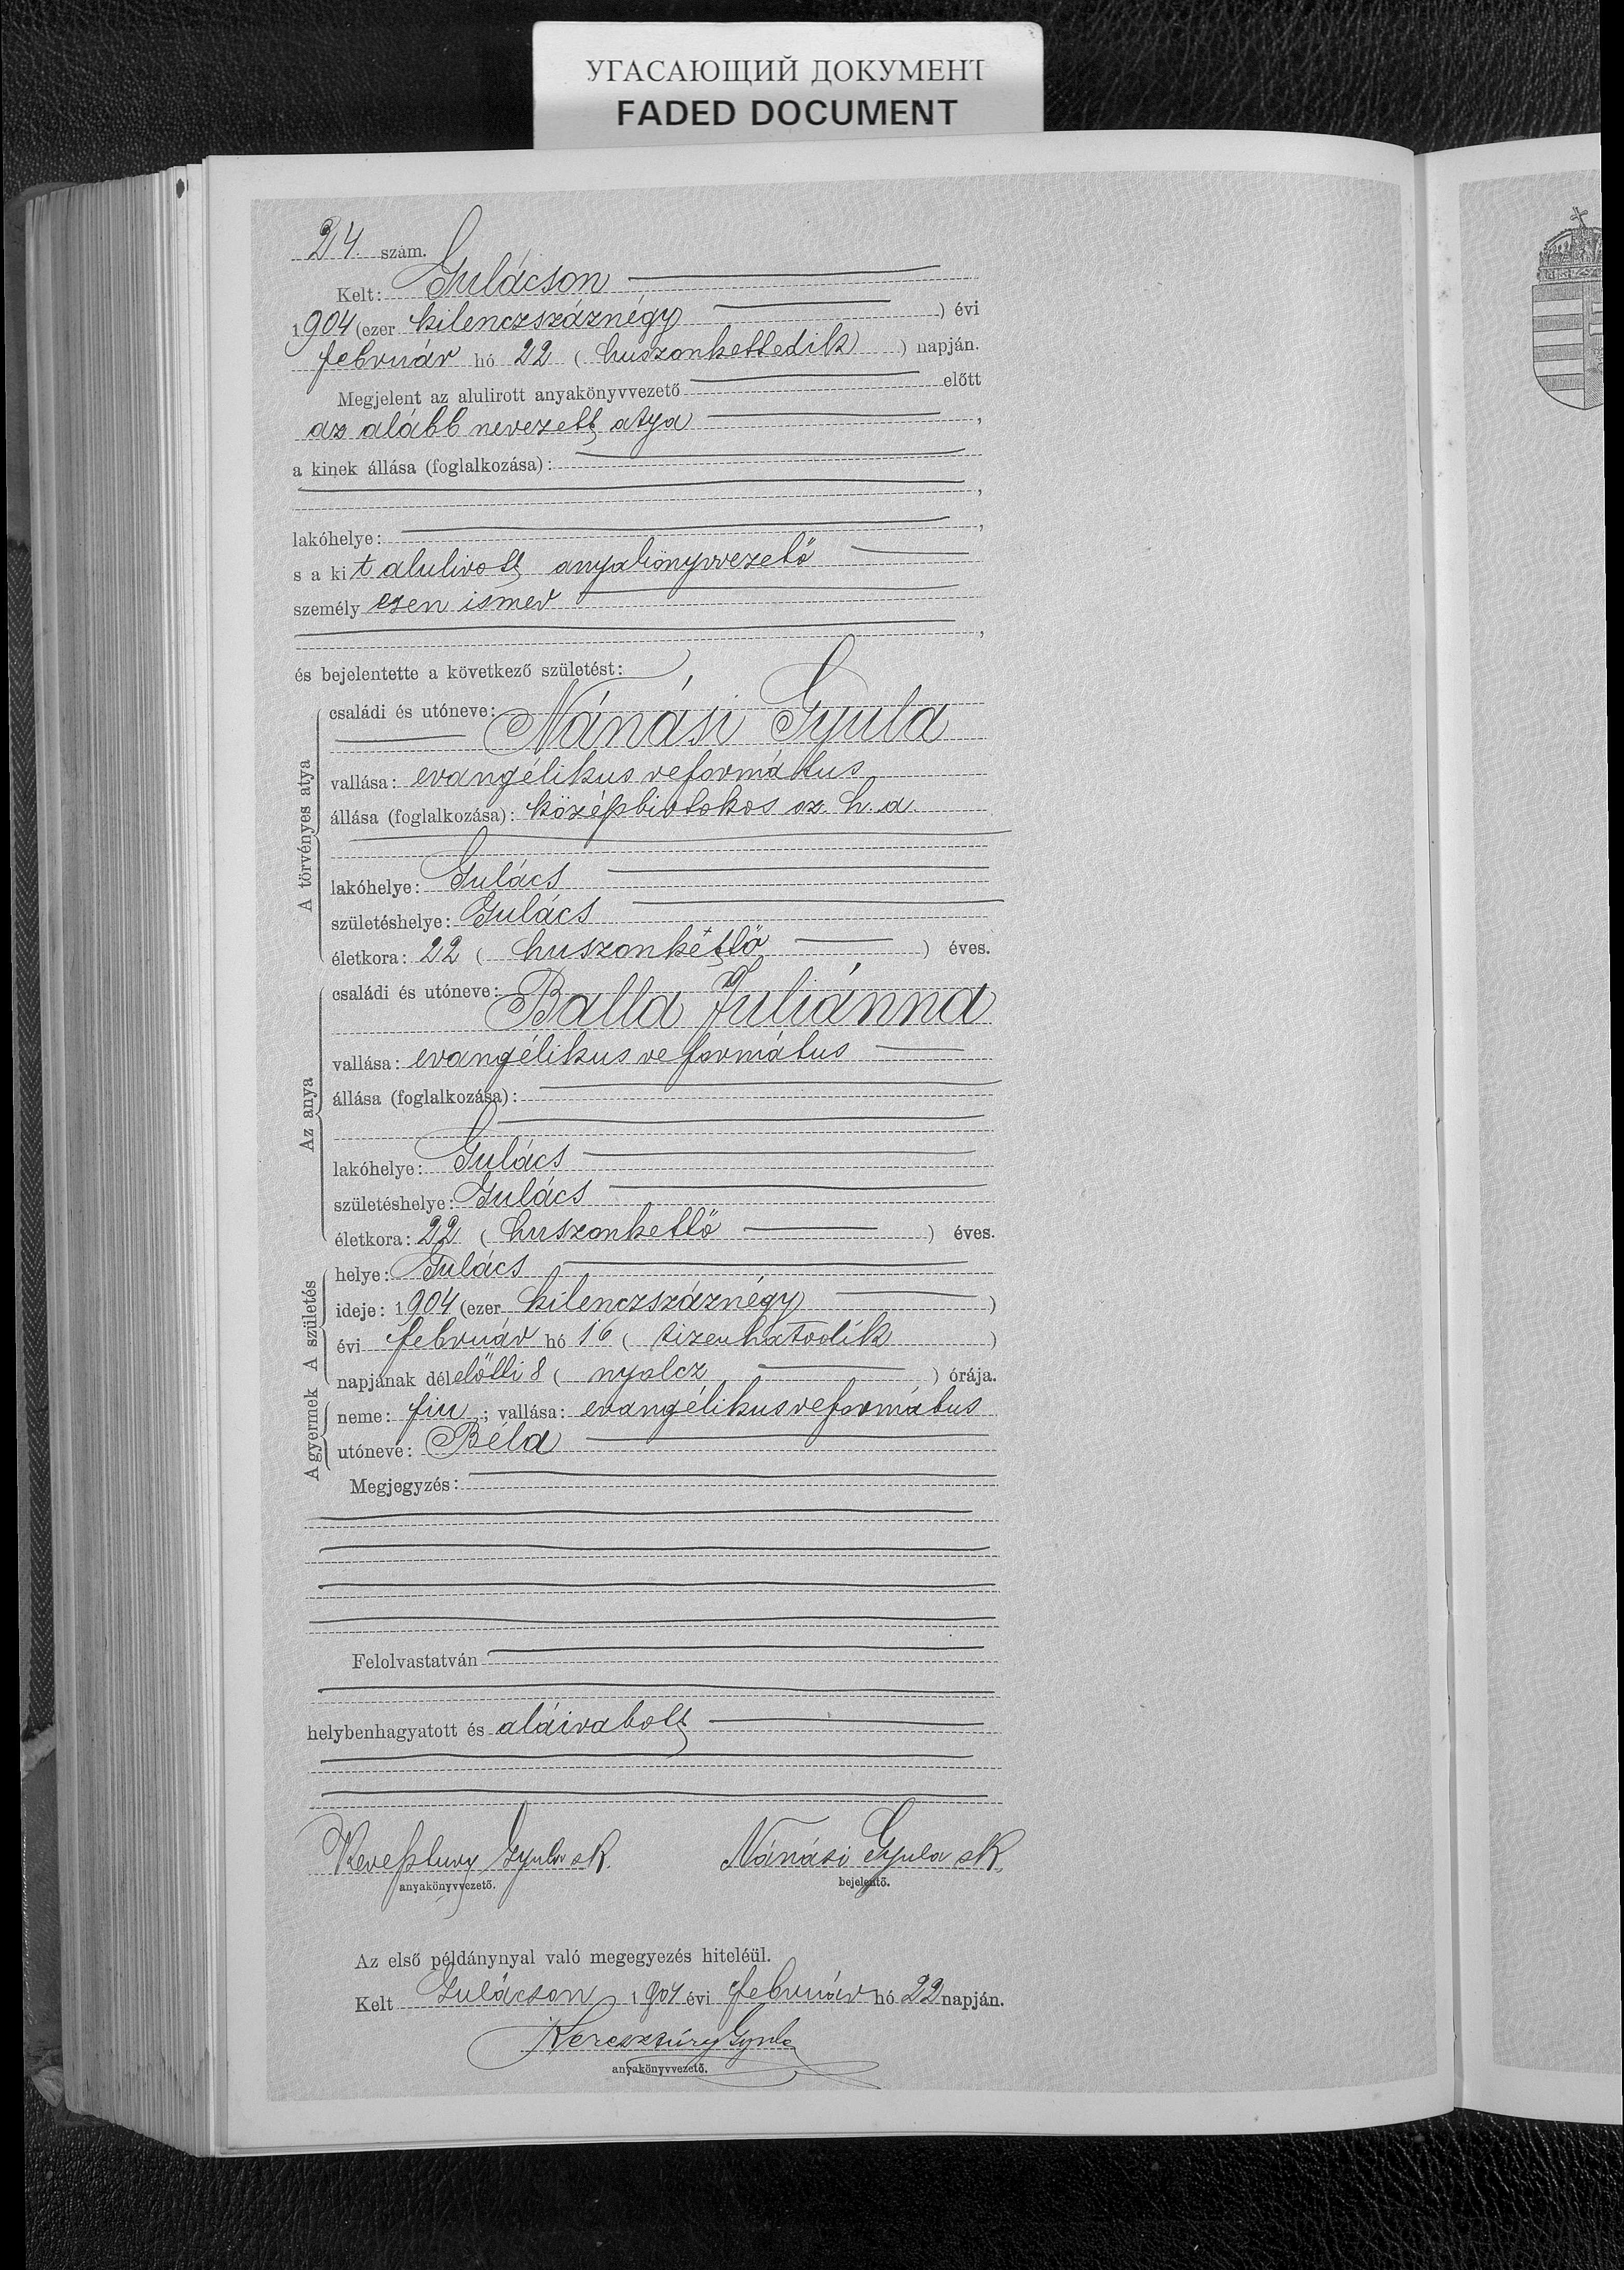 УГАСАЮЩИЙ ДОКУМЕНТ
FADED DOCUMENT
24. szám.
Kelt: Gulácson
1904 (ezer kilenczszáznégy ) évi
február hó 22 ( huszonkettedik ) napján.
Megjelent az alulirott anyakönyvvezető előtt
az alább nevezett atya ,
a kinek állása (foglalkozása):
,
lakóhelye: ,
s a kit alulirott anyakönyvvezető
személyesen ismer
,
és bejelentette a következő születést:
A törvényes atya
családi és utóneve: Nánási Gyula
vallása: evangélikus református
állása (foglalkozása): középbirtokos az h. a.
lakóhelye: Gulács
születéshelye: Gulács
életkora: 22 ( huszonkéttő ) éves.
Az anya
családi és utóneve: Balla Juliánna
vallása: evangélikus református
állása (foglalkozása):
lakóhelye: Gulács
születéshelye: Gulács
életkora: 22 ( huszonkettő ) éves.
A születés
helye: Gulács
ideje: 1904 (ezer kilenczszáznégy )
évi február hó 16 ( tizenhatodik )
napjának délelőtti 8 ( nyolcz ) órája.
A gyermek
neme: fiu ; vallása: evangélikus református
utóneve: Béla
Megjegyzés:
Felolvastatván
helybenhagyatott és aláiratott
Kereßtury Gyula sk. Nánási Gyula sk.
anyakönyvvezető. bejelentő.
Az első példánynyal való megegyezés hiteléül.
Kelt Gulácson 1904 évi február hó 22 napján.
Keresztúry Gyula
anyakönyvvezető.